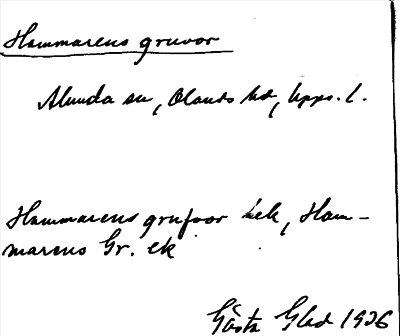 Hammarens gruvor
Alunda sn, Olands hd, Upps. l.
Hammarens grufvor hek, Ham-
marens Gr. ek
Gösta Glad 1926